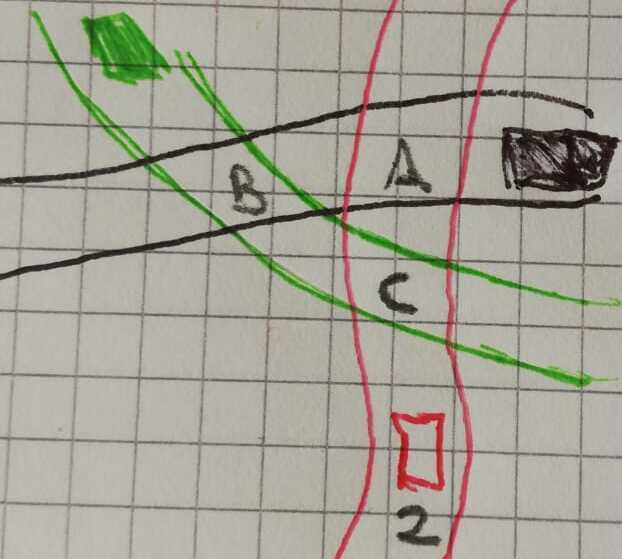 A
B
C
2